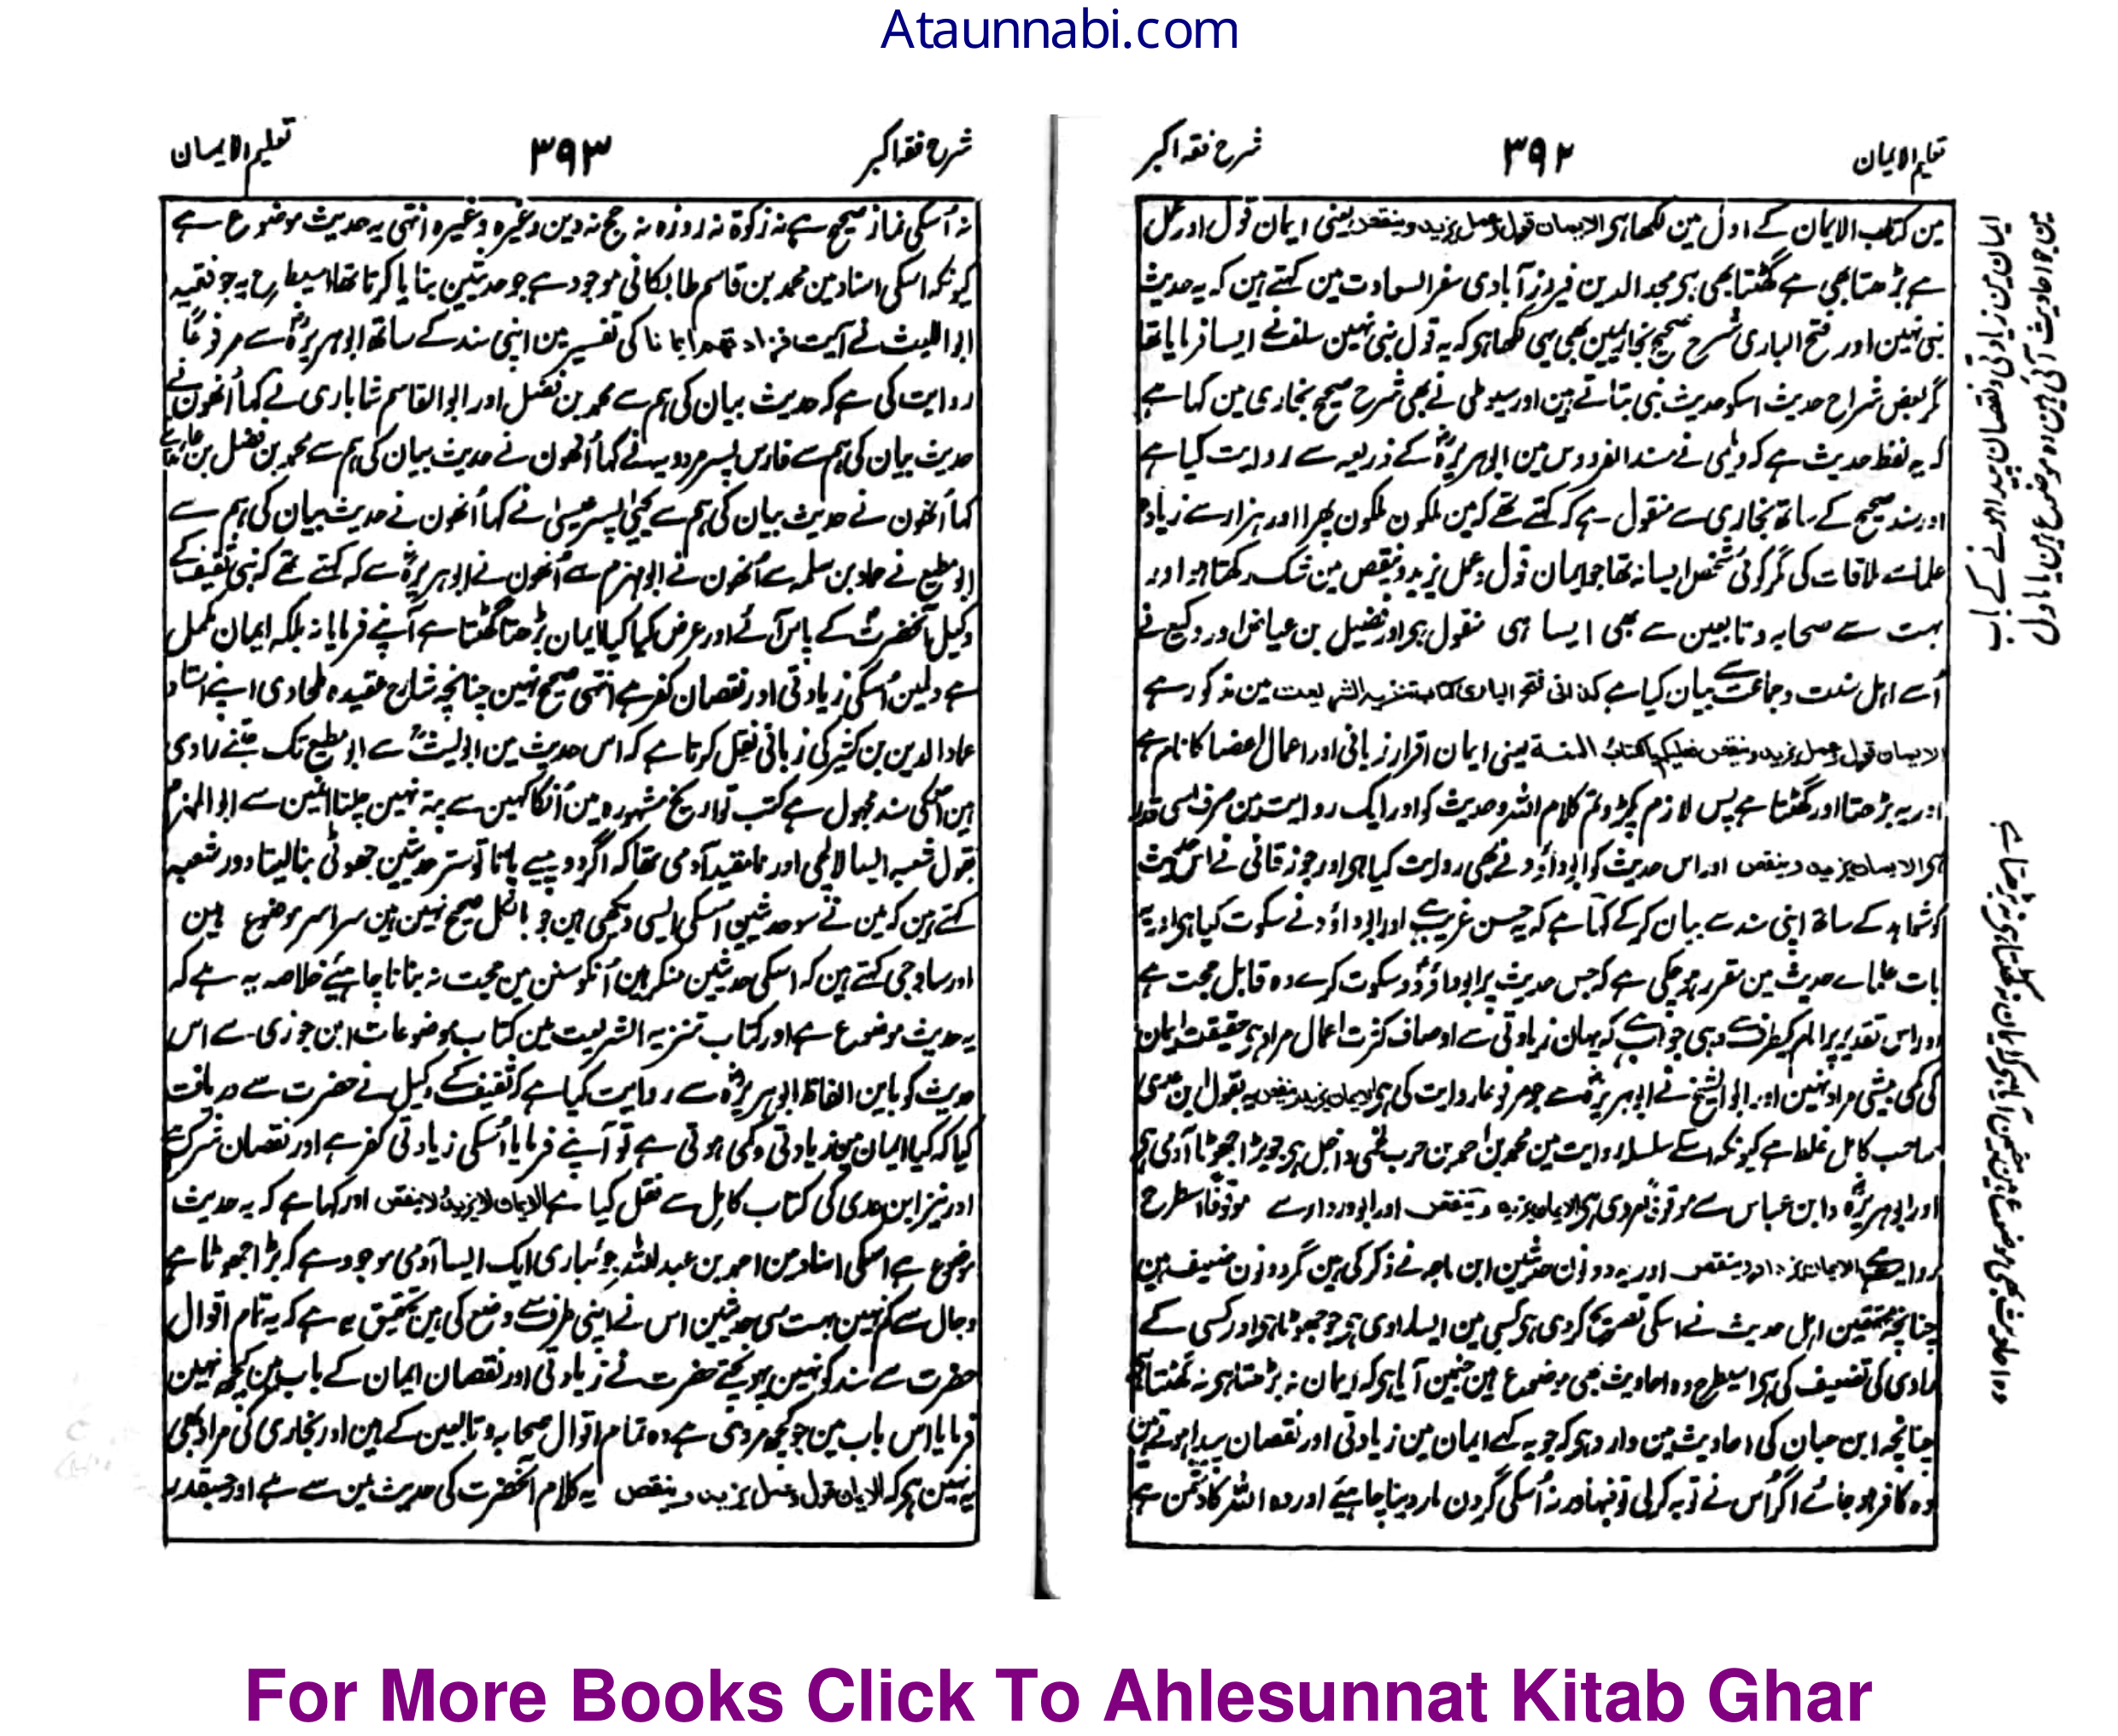 Ataunnabi.com
تعلیم الایمان ۳۹۲ شرح فقہ اکبر
مین کتاب الایمان کے اول مین لکھا ہی الایمان قول وعمل یزید وینقص یعنی ایمان قول اور عمل
ہے بڑھتا بھی ہے گھٹتا بھی ہی مجد الدین فیروز آبادی سفر السعادت مین کہتے ہین کہ یہ حدیث
نبی نہین اور فتح الباری شرح صحیح بخاری مین بھی یہی لکھا ہی کہ یہ قول نبی نہین سلف نے ایسا فرمایا تھا
مگر بعض شراح حدیث اسکو حدیث نبی بتاتے ہین اور سیوطی نے بھی شرح صحیح بخاری مین کہا ہے
کہ یہ لفظ حدیث ہے کہ دیلمی نے مسند الفردوس مین ابی ہریرہؓ کے ذریعہ سے روایت کیا ہے
اور سند صحیح کے ساتھ بخاری سے منقول ہے کہ کہتے تھے کہ مین ملکون ملکون پھرا اور ہزار سے زیادہ
علما سے ملاقات کی مگر کوئی شخص ایسا نہ تھا جو ایمان قول وعمل یزید وینقص مین شک رکھتا ہو اور
بہت سے صحابہ و تابعین سے بھی ایسا ہی منقول ہی اور فضیل بن عیاض اور وکیع نے
اُسے اہل سنت وجماعت سے بیان کیا ہے کذا فی فتح الباری کتاب تنزیہ الشریعت مین مذکور ہے
الایمان قول وعمل یزید وینقص فعلیکم بالکتاب والسنة یعنی ایمان اقرار زبانی اور اعمال اعضا کا نام ہے
اور یہ بڑھتا اور گھٹتا ہے پس لازم پکڑو تم کلام اللہ وحدیث کو اور ایک روایت مین صرف اسی قدر
ہی الایمان یزید وینقص اور اس حدیث کو ابوداؤد نے بھی روایت کیا ہی اور جوزقانی نے اس حدیث
کو شاہد کے ساتھ اپنی سند سے بیان کرکے کہا ہے کہ یہ حسن غریب ہے اور ابوداؤد نے سکوت کیا ہی اور یہ
بات علماے حدیث مین مقرر ہوچکی ہے کہ جس حدیث پر ابوداؤد سکوت کرے وہ قابل حجت ہے
اور اس تقدیر پر امام کیطرف سے وہی جواب ہے کہ یہان زیادتی سے اوصاف کثرت اعمال مراد ہی حقیقت ایمان
کی کمی بیشی مراد نہین اور ابو الشیخ نے ابو ہریرہؓ سے جو مرفوعا روایت کی ہی الایمان یزید وینقص یہ بقول ابن عدی
صاحب کامل غلط ہے کیونکہ اسکے سلسلہ روایت مین محمد بن احمد بن حرب ملحمی داخل ہی جو بڑا جھوٹا آدمی ہی
اور ابوہریرہؓ وابن عباس سے موقوفاً مروی ہی الایمان یزید وینقص اور ابودرداء سے موقوفاً اسطرح
روایت ہے الایمان یزداد وینقص اور یہ دونون حدیثین ابن ماجہ نے ذکر کی ہین مگر دونون ضعیف ہین
چنانچہ محققین اہل حدیث نے اسکی تصریح کردی ہی کسی مین ایسا راوی ہی جو جھوٹا ہی اور کسی کے
راوی کی تضعیف کی ہی اسیطرح وہ احادیث بھی موضوع ہین جنمین آیا ہی کہ ایمان نہ بڑھتا ہی نہ گھٹتا ہی
چنانچہ ابن حبان کی احادیث مین وارد ہی کہ جو یہ کہے ایمان مین زیادتی اور نقصان پیدا ہوتے ہین
وہ کافر ہو جائے اگر اُس نے توبہ کرلی تو فبہا ورنہ اُسکی گردن مار دینا چاہیئے اور وہ اللہ کا دشمن ہے
ایمان مین زیادتی ونقصان پیدا ہونے کے باب
مین جو احادیث آئی ہین وہ موضوع ہین یا ماول
وہ احادیث بھی موضوع ہین جنمین آیا ہی کہ ایمان نہ گھٹتا ہی نہ بڑھتا ہے
شرح فقہ اکبر ۳۹۳ تعلیم الایمان
نہ اُسکی نماز صحیح ہے نہ زکوۃ نہ روزہ نہ حج نہ دین وغیرہ وغیرہ انتہی یہ حدیث موضوع ہے
کیونکہ اسکی اسناد مین محمد بن قاسم طایکانی موجود ہے جو حدیثین بنایا کرتا تھا اسیطرح یہ جو فقیہ
ابو اللیث نے آیت فزادتھم ایمانا کی تفسیر مین اپنی سند کے ساتھ ابو ہریرہؓ سے مرفوعًا
روایت کی ہے کہ حدیث بیان کی ہم سے محمد بن فضل اور ابو القاسم شاباری نے کہا اُنھون نے
حدیث بیان کی ہم سے فارس پسر مردویہ نے کہا اُنھون نے حدیث بیان کی ہم سے محمد بن فضل بن عابد نے
کہا اُنھون نے حدیث بیان کی ہم سے یحییٰ پسر عیسیٰ نے کہا اُنھون نے حدیث بیان کی ہم سے
ابو مطیع نے حماد بن سلمہ سے اُنھون نے ابو مہزم سے اُنھون نے ابوہریرہؓ سے کہ کہتے تھے کہ بنی ثقیف کے
وکیل آنحضرتؐ کے پاس آئے اور عرض کیا کیا ایمان بڑھتا گھٹتا ہے آپنے فرمایا نہ بلکہ ایمان مکمل
ہے دلمین اُسکی زیادتی اور نقصان کفر ہے انتہی صحیح نہین چنانچہ شارح عقیدہ طحاوی اپنے استاد
عماد الدین بن کثیر کی زبانی نقل کرتا ہے کہ اس حدیث مین ابو لیث سے ابو مطیع تک جتنے راوی
ہین اسکی سند مجہول ہے کتب تواریخ مشہورہ مین اُنکا کہین سے پتہ نہین چلتا انہین سے ابو المہزم
بقول شعبہ ایسا لالچی اور نامقید آدمی تھا کہ اگر دو پیسے پاتا تو ستر حدیثین جھوٹی بنا لیتا اور شعبہ
کہتے ہین کہ مین نے سو حدیثین اُسکی ایسی دیکھی ہین جو بالکل صحیح نہین ہین سراسر موضوع ہین
اور ساوجی کہتے ہین کہ اسکی حدیثین منکر ہین اُنکو سنن مین حجت نہ بنانا چاہیئے خلاصہ یہ ہے کہ
یہ حدیث موضوع ہے اور کتاب تنزیہ الشریعت مین کتاب موضوعات ابن جوزی سے اس
حدیث کو باین الفاظ ابی ہریرہؓ سے روایت کیا ہے کہ ثقیف کے وکیل نے حضرت سے دریافت
کیا کہ کیا ایمان مین زیادتی وکمی ہوتی ہے تو آپنے فرمایا اُسکی زیادتی کفر ہے اور نقصان شرک ہے
اور نیز ابن عدی کی کتاب کامل سے نقل کیا ہے الایمان لایزید ولا ینقص اور کہا ہے کہ یہ حدیث
موضوع ہے اسکی اسناد مین احمد بن عبداللہ جوئباری ایک ایسا آدمی موجود ہے کہ بڑا جھوٹا ہے
دجال سے کم نہین بہت سی حدیثین اس نے اپنی طرف سے وضع کی ہین تحقیق یہ ہے کہ یہ تمام اقوال
حضرت سے سند کو نہین پہونچتے حضرت نے زیادتی اور نقصان ایمان کے باب مین کچھ نہین
فرمایا اس باب مین جو کچھ مروی ہے وہ تمام اقوال صحابہ وتابعین کے ہین اور بخاری کی مراد بھی
یہ نہین ہی کہ الایمان قول وعمل یزید وینقص یہ کلام آنحضرت کی حدیث مین سے ہے اور جسقدر
For More Books Click To Ahlesunnat Kitab Ghar